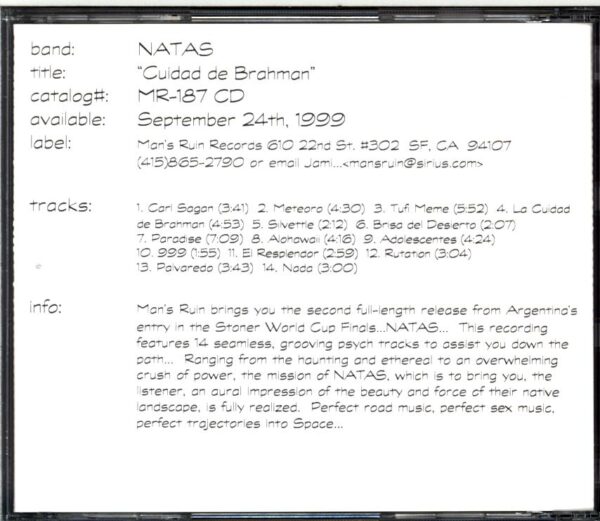 band: NATAS
title: "Cuidad de Brahman"
catalog#: MR-187 CD
available: September 24th, 1999
label: Man's Ruin Records 610 22nd St. #302 SF, CA 94107
(415)865-2790 or email Jami...<mansruin@sirius.com>
tracks: 1. Carl Sagan (3:41) 2. Meteoro (4:30) 3. Tufi Meme (5:52) 4. La Cuidad
de Brahman (4:53) 5. Silvette (2:12) 6. Brisa del Desierto (2:07)
7. Paradise (7:09) 8. Alohawaii (4:16) 9. Adolescentes (4:24)
10. 999 (1:55) 11. El Resplendor (2:59) 12. Rutation (3:04)
13. Polvaredo (3:43) 14. Nada (3:00)
info: Man's Ruin brings you the second full-length release from Argentina's
entry in the Stoner World Cup Finals...NATAS... This recording
features 14 seamless, grooving psych tracks to assist you down the
path... Ranging from the haunting and ethereal to an overwhelming
crush of power, the mission of NATAS, which is to bring you, the
listener, an aural impression of the beauty and force of their native
landscape, is fully realized. Perfect road music, perfect sex music,
perfect trajectories into Space...